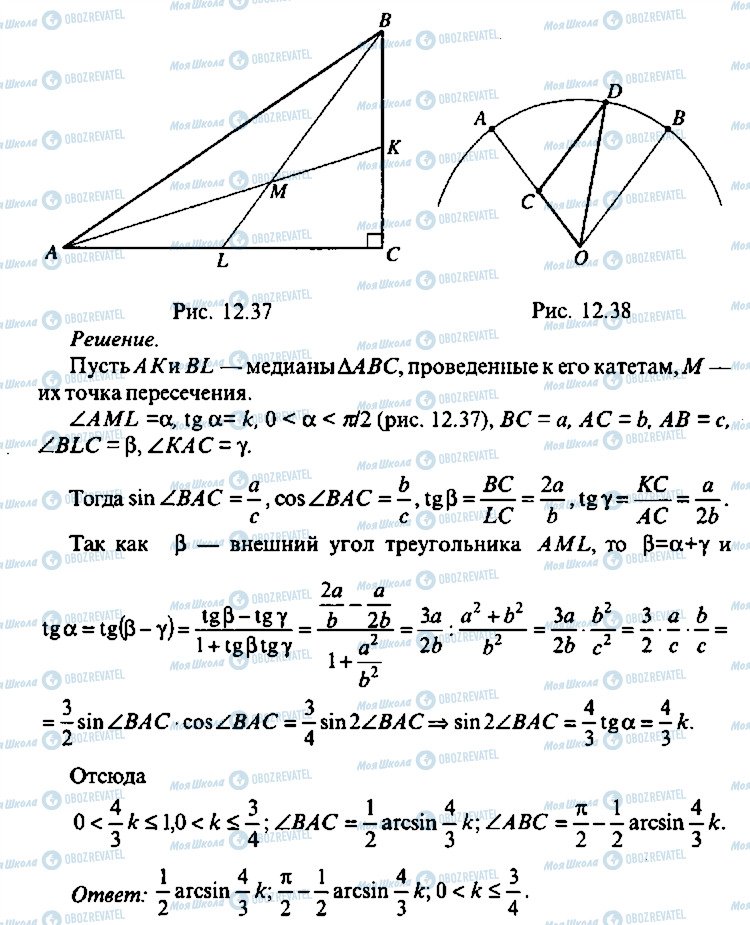 B
K
M
A
L
C
D
A
B
C
O
Рис. 12.37
Рис. 12.38
Решение.
Пусть AK и BL — медианы ΔABC, проведенные к его катетам, M —
их точка пересечения.
∠AML =α, tg α= k, 0 < α < π/2 (рис. 12.37), BC = a, AC = b, AB = c,
∠BLC = β, ∠KAC = γ.
Тогда sin ∠BAC = a/c, cos ∠BAC = b/c, tg β = BC/LC = 2a/b, tg γ = KC/AC = a/2b.
Так как β — внешний угол треугольника AML, то β=α+γ и
tg α = tg(β − γ) = (tg β − tg γ)/(1 + tg β tg γ) = (2a/b − a/2b)/(1 + a²/b²) = 3a/2b : (a² + b²)/b² = 3a/2b · b²/c² = 3/2 · a/c · b/c =
= 3/2 sin ∠BAC · cos ∠BAC = 3/4 sin 2∠BAC ⇒ sin 2∠BAC = 4/3 tg α = 4/3 k.
Отсюда
0 < 4/3 k ≤ 1, 0 < k ≤ 3/4; ∠BAC = 1/2 arcsin 4/3 k; ∠ABC = π/2 − 1/2 arcsin 4/3 k.
Ответ: 1/2 arcsin 4/3 k; π/2 − 1/2 arcsin 4/3 k; 0 < k ≤ 3/4.
Моя Школа OBOZREVATEL